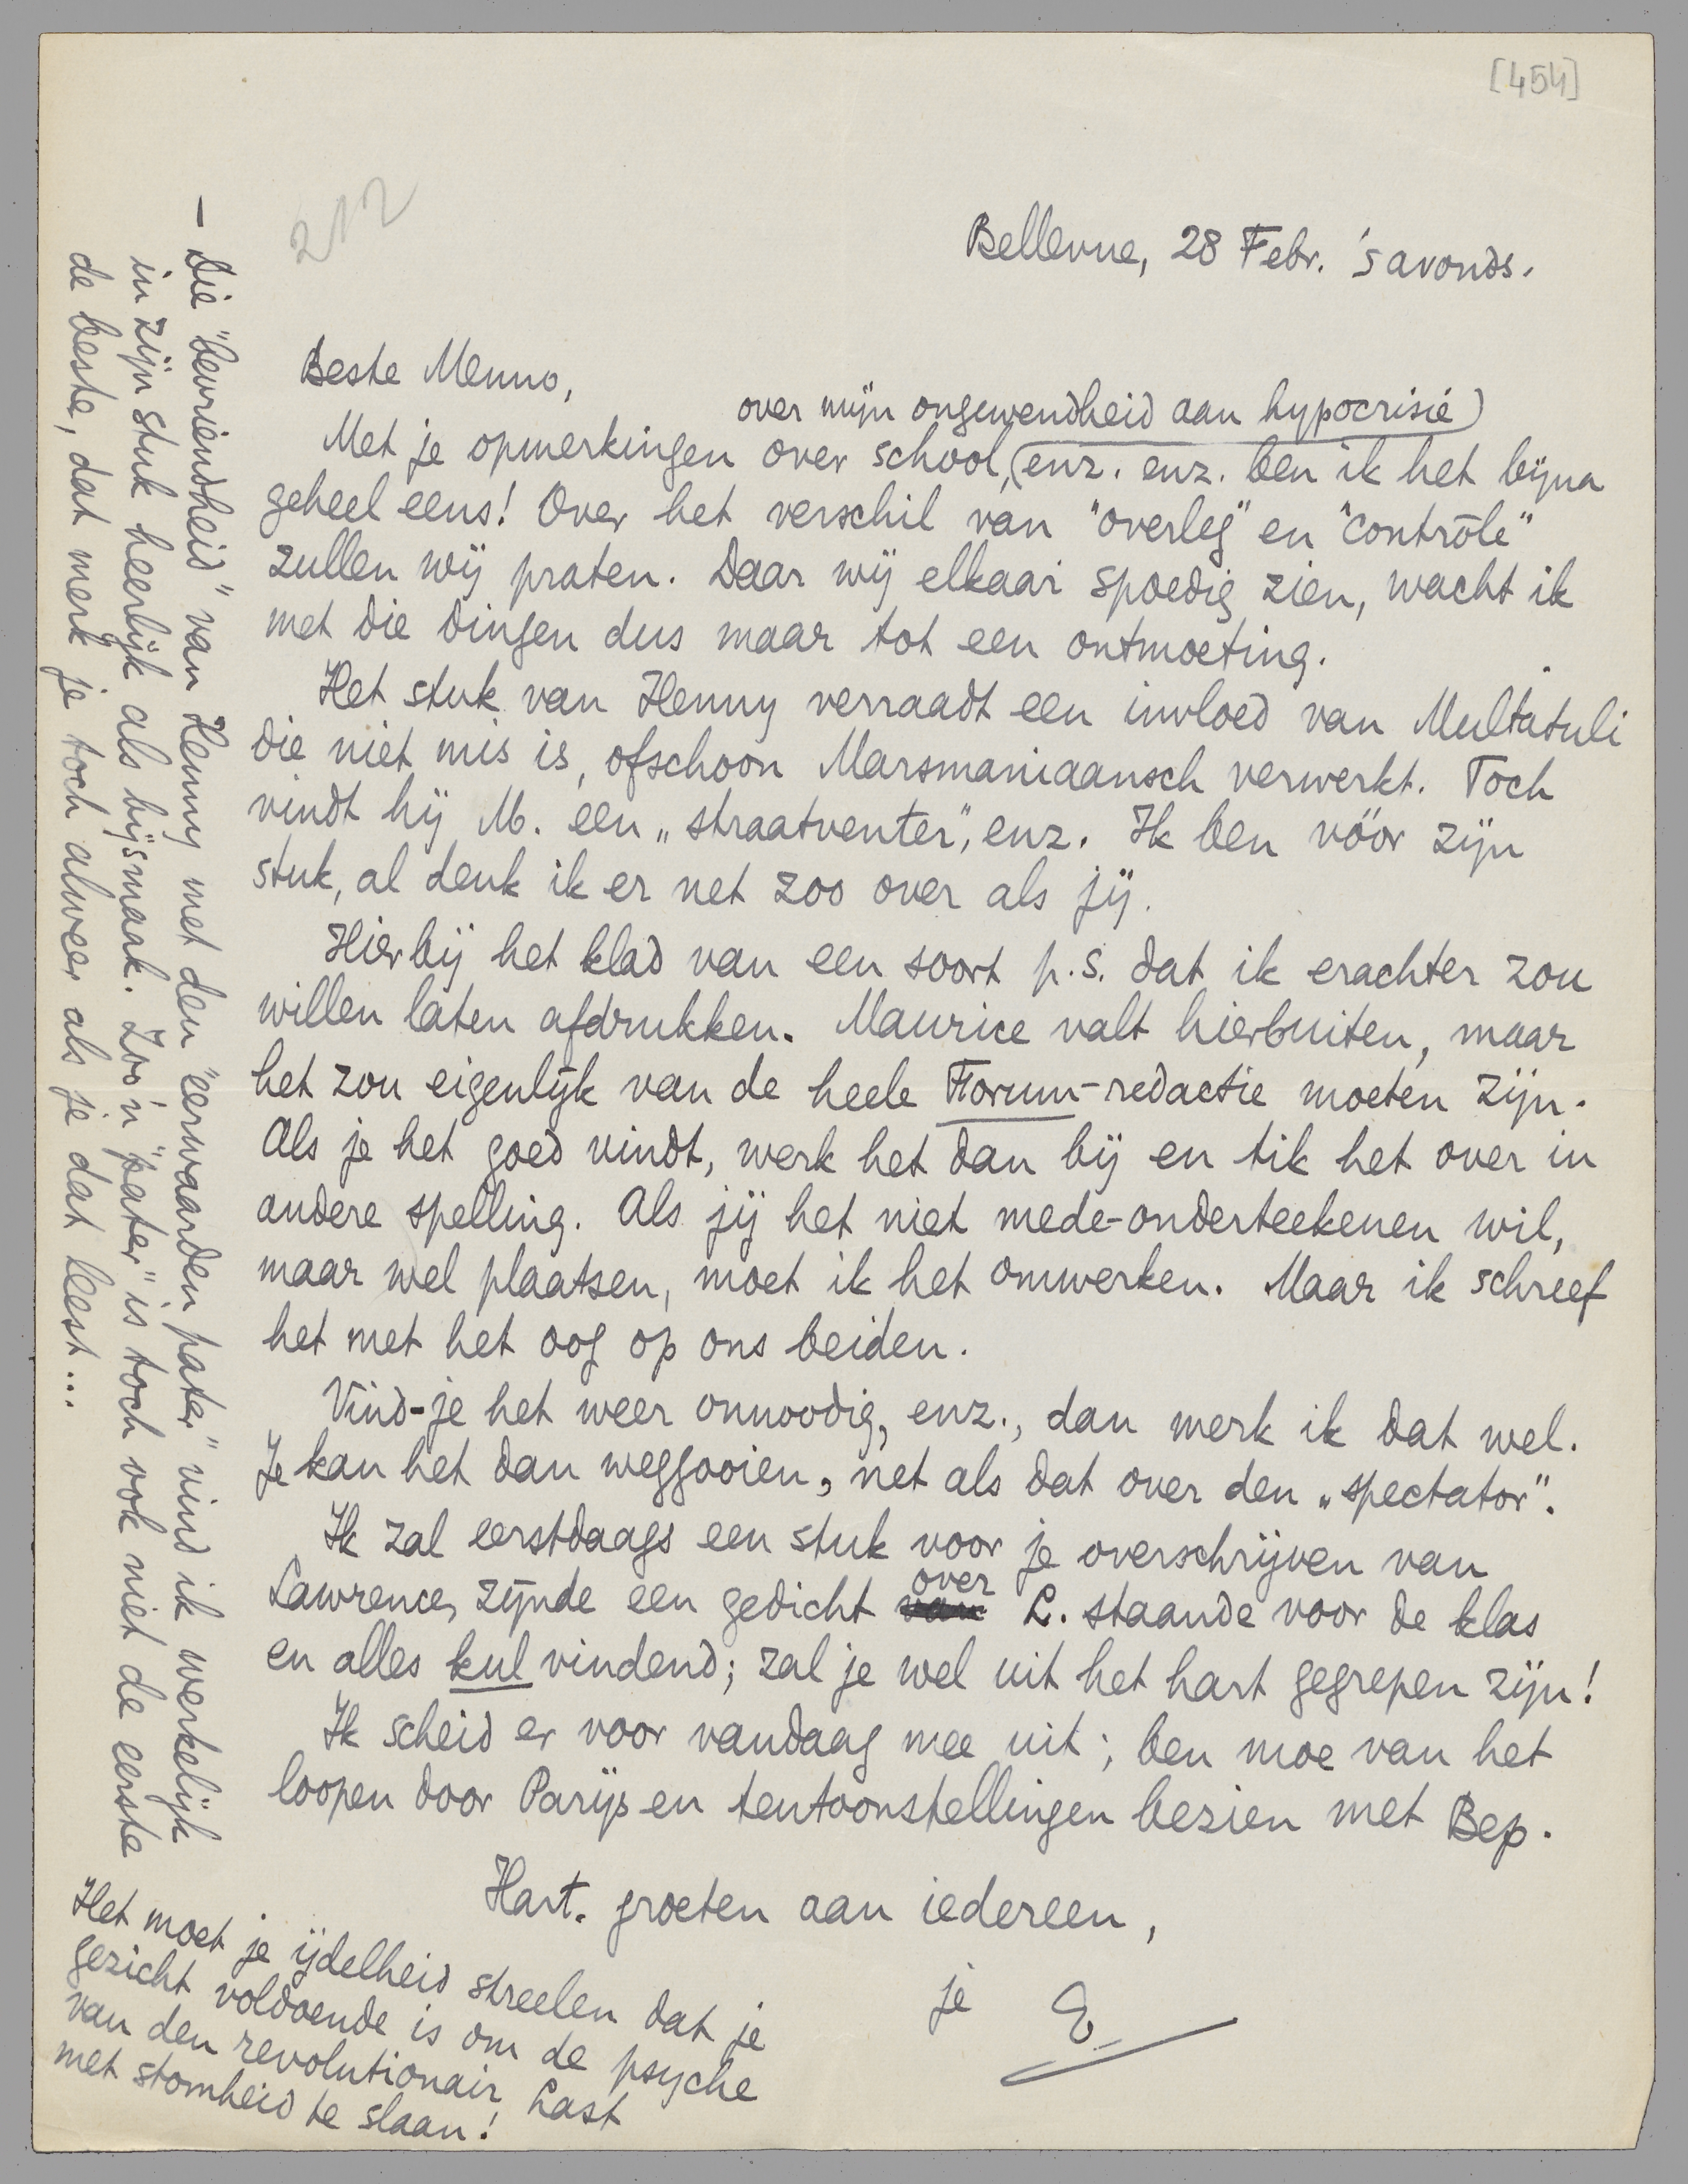 [454]
212
Bellevue, 28 Febr. 's avonds.
Beste Menno,
over mijn ongewendheid aan hypocrisie)
Met je opmerkingen over school, (enz. enz. ben ik het bijna
geheel eens! Over het verschil van "overleg" en "contrôle"
zullen wij praten. Daar wij elkaar spoedig zien, wacht ik
met die dingen dus maar tot een ontmoeting.
Het stuk van Henny verraadt een invloed van Multatuli
die niet mis is, ofschoon Marsmaniaansch verwerkt. Toch
vindt hij M. een „straatventer", enz. Ik ben vóór zijn
stuk, al denk ik er net zoo over als jij.
Hierbij het klad van een soort p.s. dat ik erachter zou
willen laten afdrukken. Maurice valt hierbuiten, maar
het zou eigenlijk van de heele Forum-redactie moeten zijn.
Als je het goed vindt, werk het dan bij en tik het over in
andere spelling. Als jij het niet mede-onderteekenen wil,
maar wel plaatsen, moet ik het omwerken. Maar ik schreef
het met het oog op ons beiden.
Vind-je het weer onnoodig, enz., dan merk ik dat wel.
Je kan het dan weggooien, net als dat over den „spectator".
Ik zal eerstdaags een stuk voor je overschrijven van
over
Lawrence, zijnde een gedicht van L. staande voor de klas
en alles kul vindend; zal je wel uit het hart gegrepen zijn!
Ik scheid er voor vandaag mee uit; ben moe van het
loopen door Parijs en tentoonstellingen bezien met Bep.
Hart. groeten aan iedereen,
je E
— Die "bevriendheid" van Henny met den "eerwaarden pater" vind ik werkelijk
in zijn stuk heerlijk als bijsmaak. Zoo'n "pater" is toch ook niet de eerste
de beste, dat merk je toch alweer als je dat leest...
Het moet je ijdelheid streelen dat je
gezicht voldoende is om de psyche
van den revolutionair Last
met stomheid te slaan!